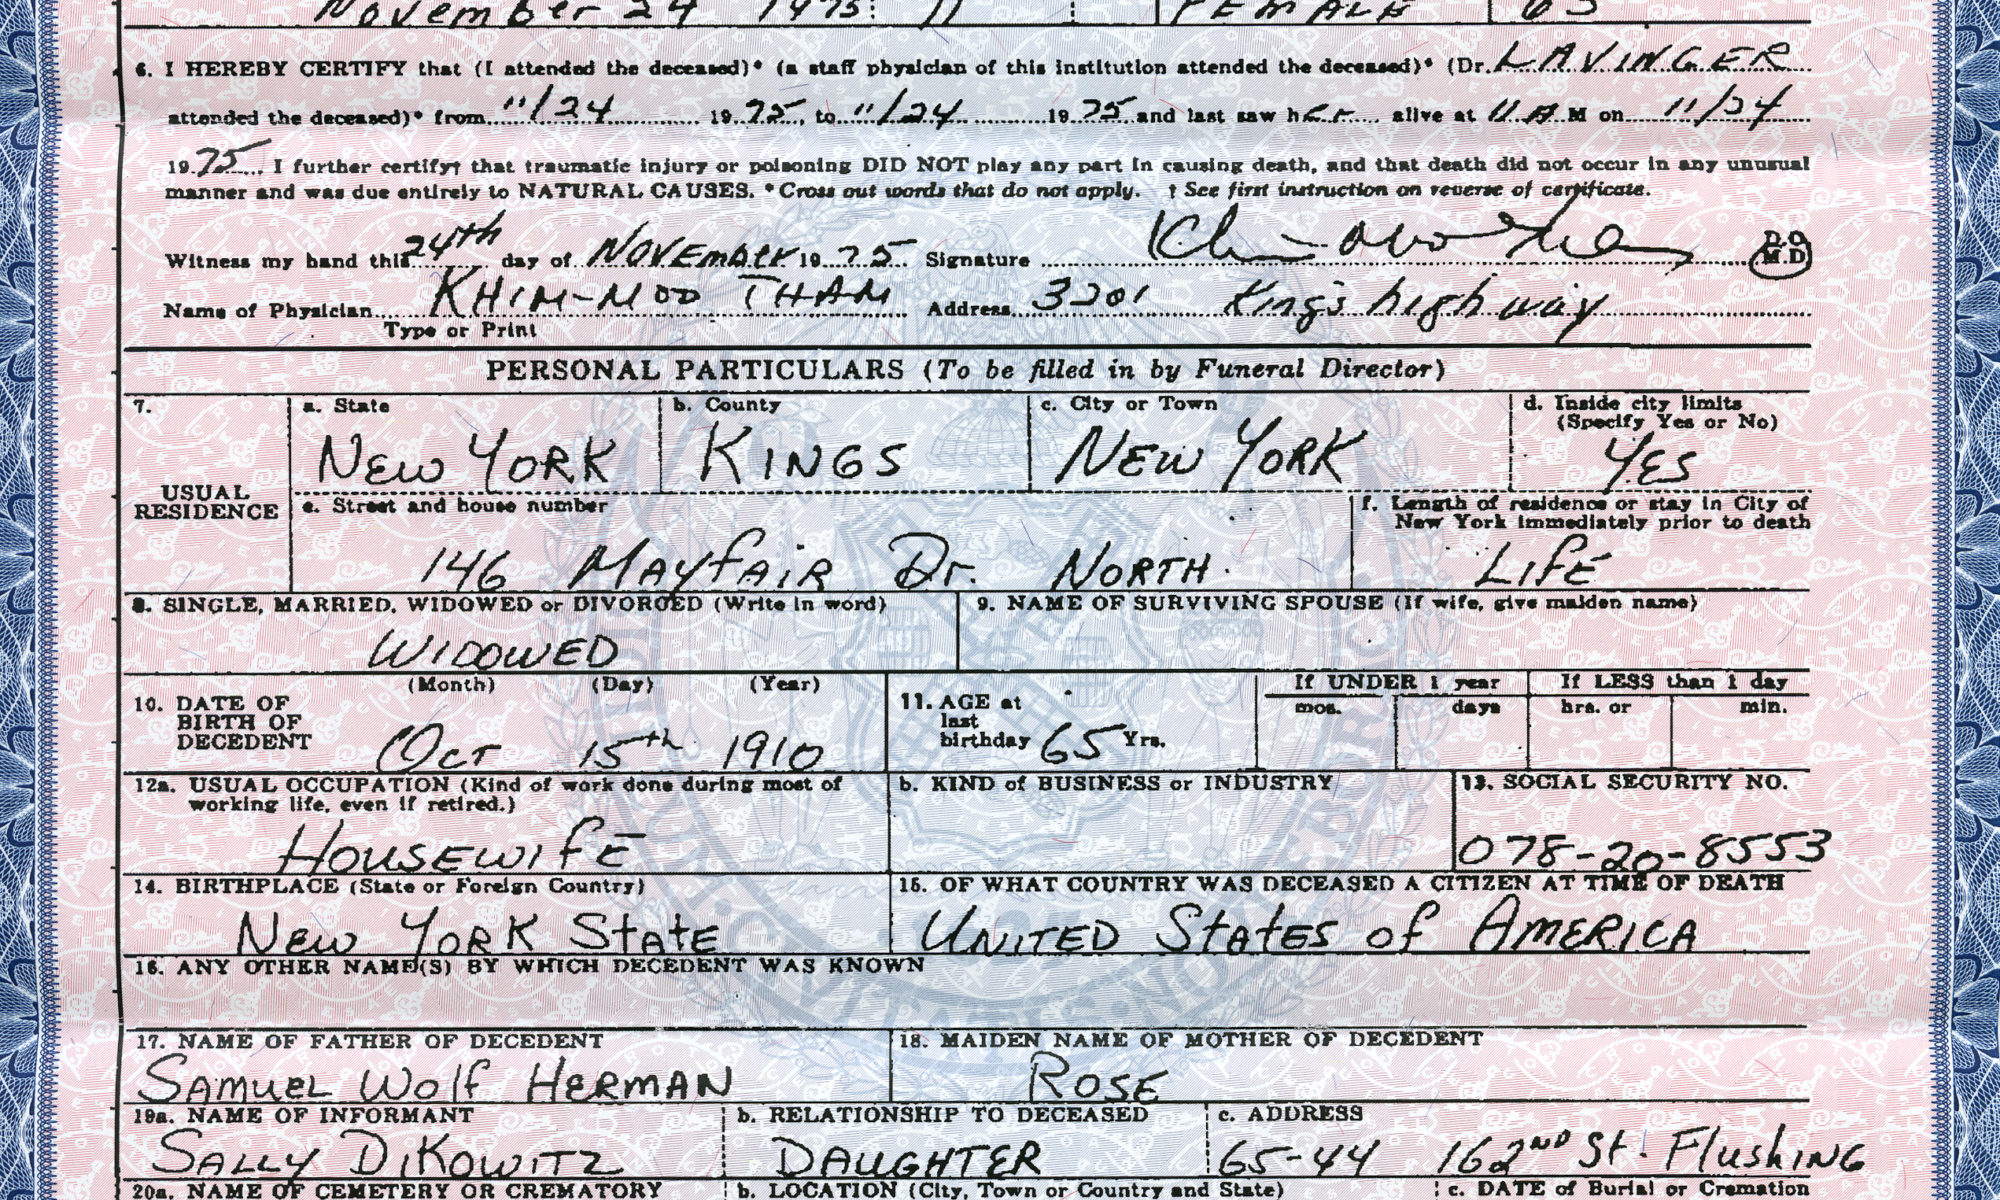 November 24 1975 11 FEMALE 65
6. I HEREBY CERTIFY that (I attended the deceased)* (a staff physician of this institution attended the deceased)* (Dr. LAVINGER
attended the deceased)* from 11/24 1975, to 11/24 1975 and last saw her alive at 11 A M on 11/24
1975. I further certify† that traumatic injury or poisoning DID NOT play any part in causing death, and that death did not occur in any unusual
manner and was due entirely to NATURAL CAUSES. *Cross out words that do not apply. † See first instruction on reverse of certificate.
Witness my hand this 24th day of NOVEMBER 1975 Signature D.O. M.D
Name of Physician KHIM-MOO THAM Address 3201 King's highway
Type or Print
PERSONAL PARTICULARS (To be filled in by Funeral Director)
7. a. State b. County c. City or Town d. Inside city limits
(Specify Yes or No)
NEW YORK KINGS NEW YORK YES
USUAL RESIDENCE
e. Street and house number f. Length of residence or stay in City of
New York immediately prior to death
146 MAYFAIR Dr. NORTH. LIFE
8. SINGLE, MARRIED, WIDOWED or DIVORCED (Write in word) 9. NAME OF SURVIVING SPOUSE (If wife, give maiden name)
WIDOWED
(Month) (Day) (Year) If UNDER 1 year If LESS than 1 day
10. DATE OF BIRTH OF DECEDENT 11. AGE at last birthday mos. days hrs. or min.
Oct 15th 1910 65 Yrs.
12a. USUAL OCCUPATION (Kind of work done during most of b. KIND of BUSINESS or INDUSTRY 13. SOCIAL SECURITY NO.
working life, even if retired.)
HOUSEWIFE 078-20-8553
14. BIRTHPLACE (State or Foreign Country) 15. OF WHAT COUNTRY WAS DECEASED A CITIZEN AT TIME OF DEATH
NEW YORK STATE UNITED STATES of AMERICA
16. ANY OTHER NAME(S) BY WHICH DECEDENT WAS KNOWN
17. NAME OF FATHER OF DECEDENT 18. MAIDEN NAME OF MOTHER OF DECEDENT
SAMUEL WOLF HERMAN ROSE
19a. NAME OF INFORMANT b. RELATIONSHIP TO DECEASED c. ADDRESS
SALLY DIKOWITZ DAUGHTER 65-44 162ND St. FLUSHING
20a. NAME OF CEMETERY OR CREMATORY b. LOCATION (City, Town or Country and State) c. DATE of Burial or Cremation